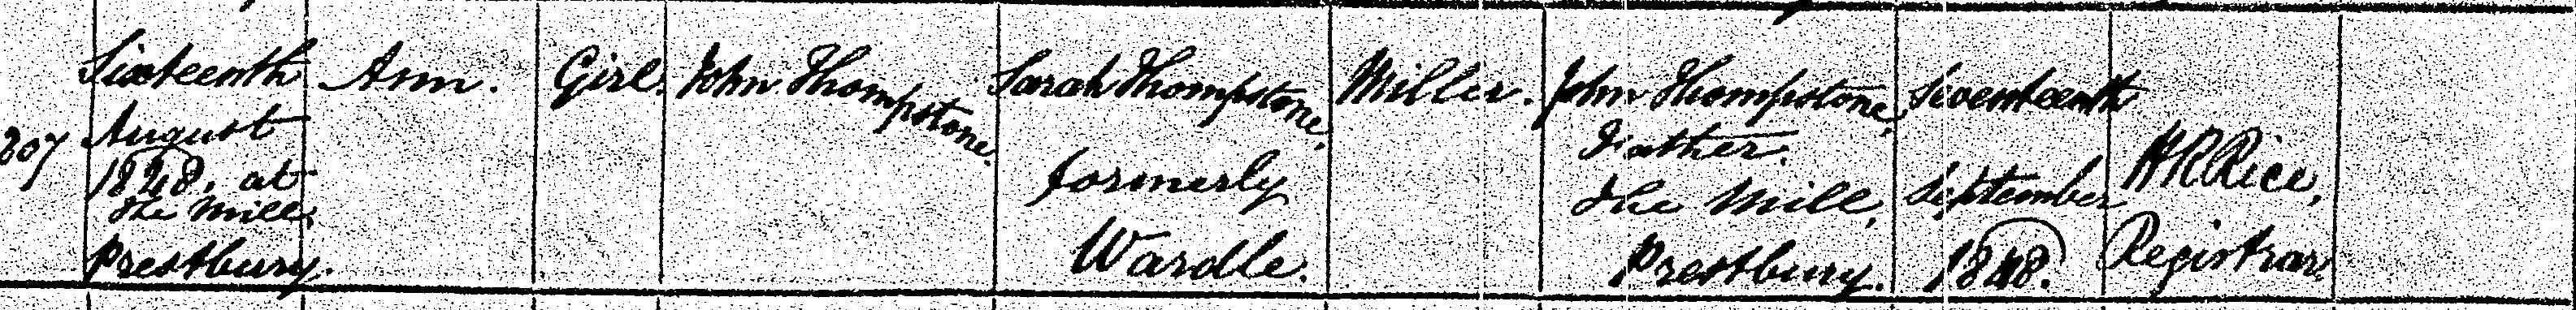 207
Sixteenth
August
1848. at
The Mill,
Prestbury.
Ann.
Girl.
John Thompstone.
Sarah Thompstone,
formerly
Wardle.
Miller.
John Thompstone,
Father.
The Mill,
Prestbury.
Seventeenth
September
1848.
H R Rice,
Registrar.